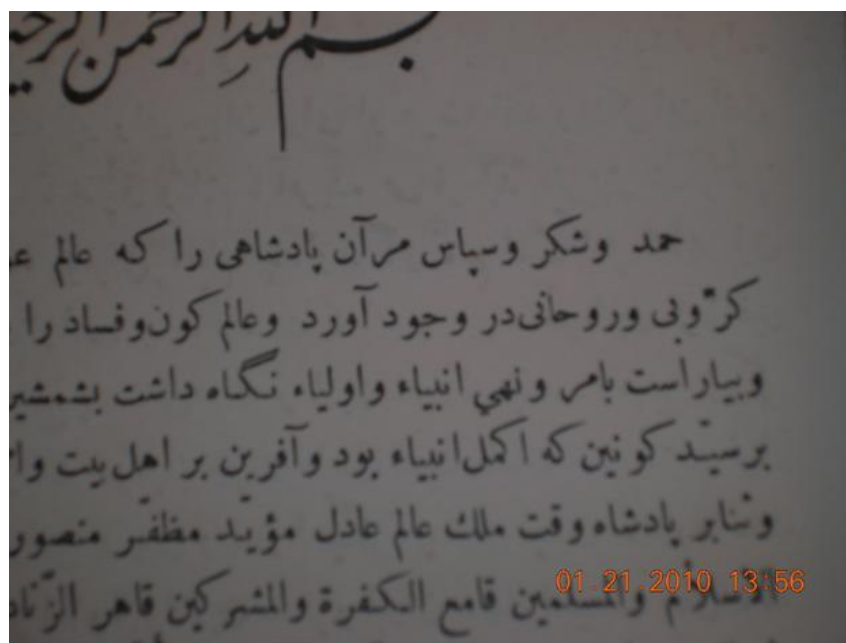 بسم الله الرحمن الرحیم
حمد وشكر وسپاس مرآن پادشاهی را که عالم
کرّوبی وروحانی در وجود آورد وعالم کون وفساد را
وبیاراست بامر ونهي انبیاء واولیاء نگاه داشت بشمشیر
برسیّد کونین که اکمل انبیاء بود وآفرین بر اهل بیت
وثنابر پادشاه وقت ملك عالم عادل مؤیّد مظفّر منصور
الاسلام والمسلمین قامع الکفرة والمشرکین قاهر
01.21.2010 13:56